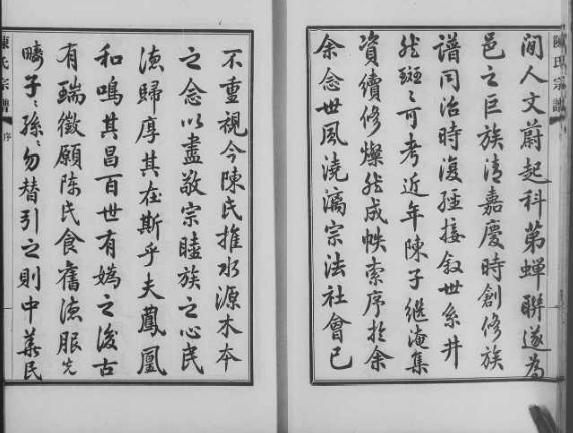 陳氏宗譜
間人文蔚起科第蟬聯遂為
邑之巨族清嘉慶時創修族
譜同治時復經接敘世系井
然斑〻可考近年陳子繼淹集
資續修燦然成帙索序於余
余念世風澆漓宗法社會已
不重視今陳氏推水源木本
之念以盡敬宗睦族之心民
德歸厚其在斯乎夫鳳凰
和鳴其昌百世有媯之後古
有瑞徵願陈氏食舊德服先
疇子〻孫〻勿替引之則中華民
陳氏宗譜
序